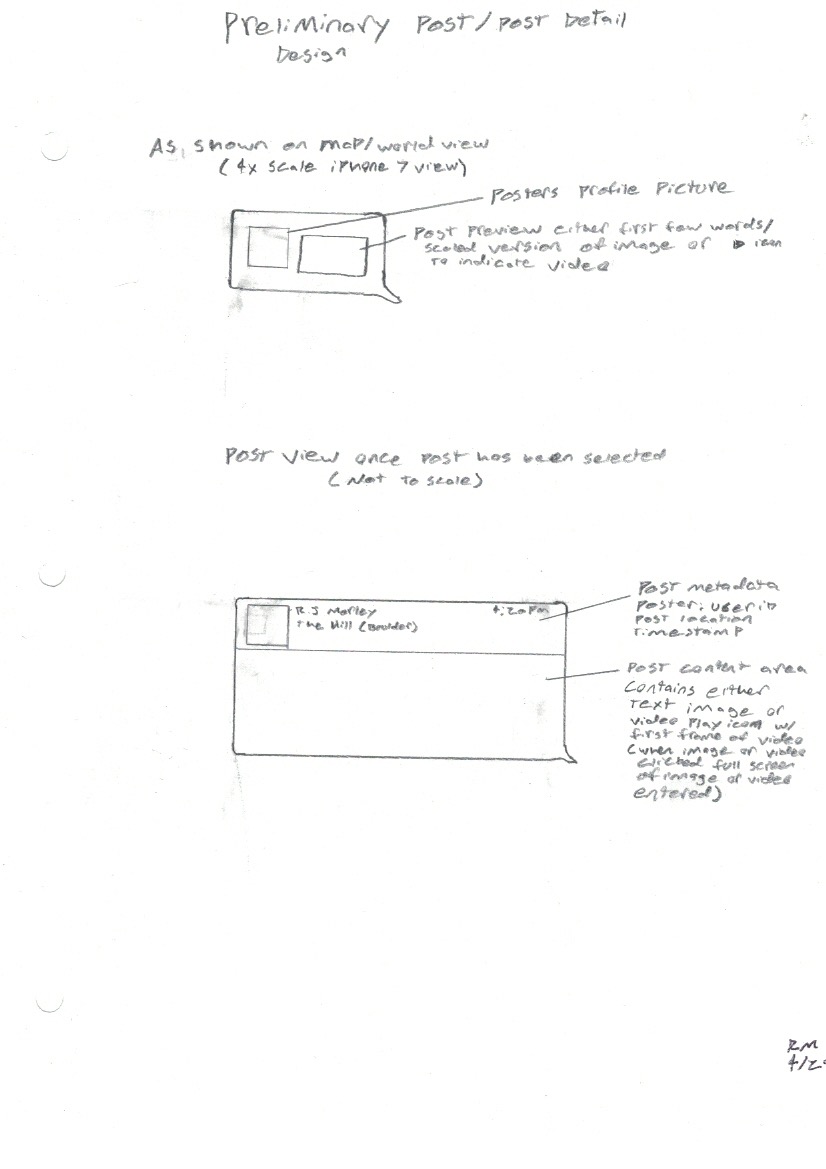 Preliminary Post/Post Detail
Design
As shown on map/world view
(4x scale iPhone 7 view)
Posters Profile Picture
Post Preview either first few words/
scaled version of image or ▶ icon
to indicate video
Post view once post has been selected
(Not to scale)
R.J Morley
The Hill (Boulder)
4:20PM
Post metadata
Poster: userID
Post location
Timestamp
Post content area
Contains either
Text image or
video Play icon w/
first frame of video
(when image or video
clicked full screen
of image or video
entered)
RM
4/2